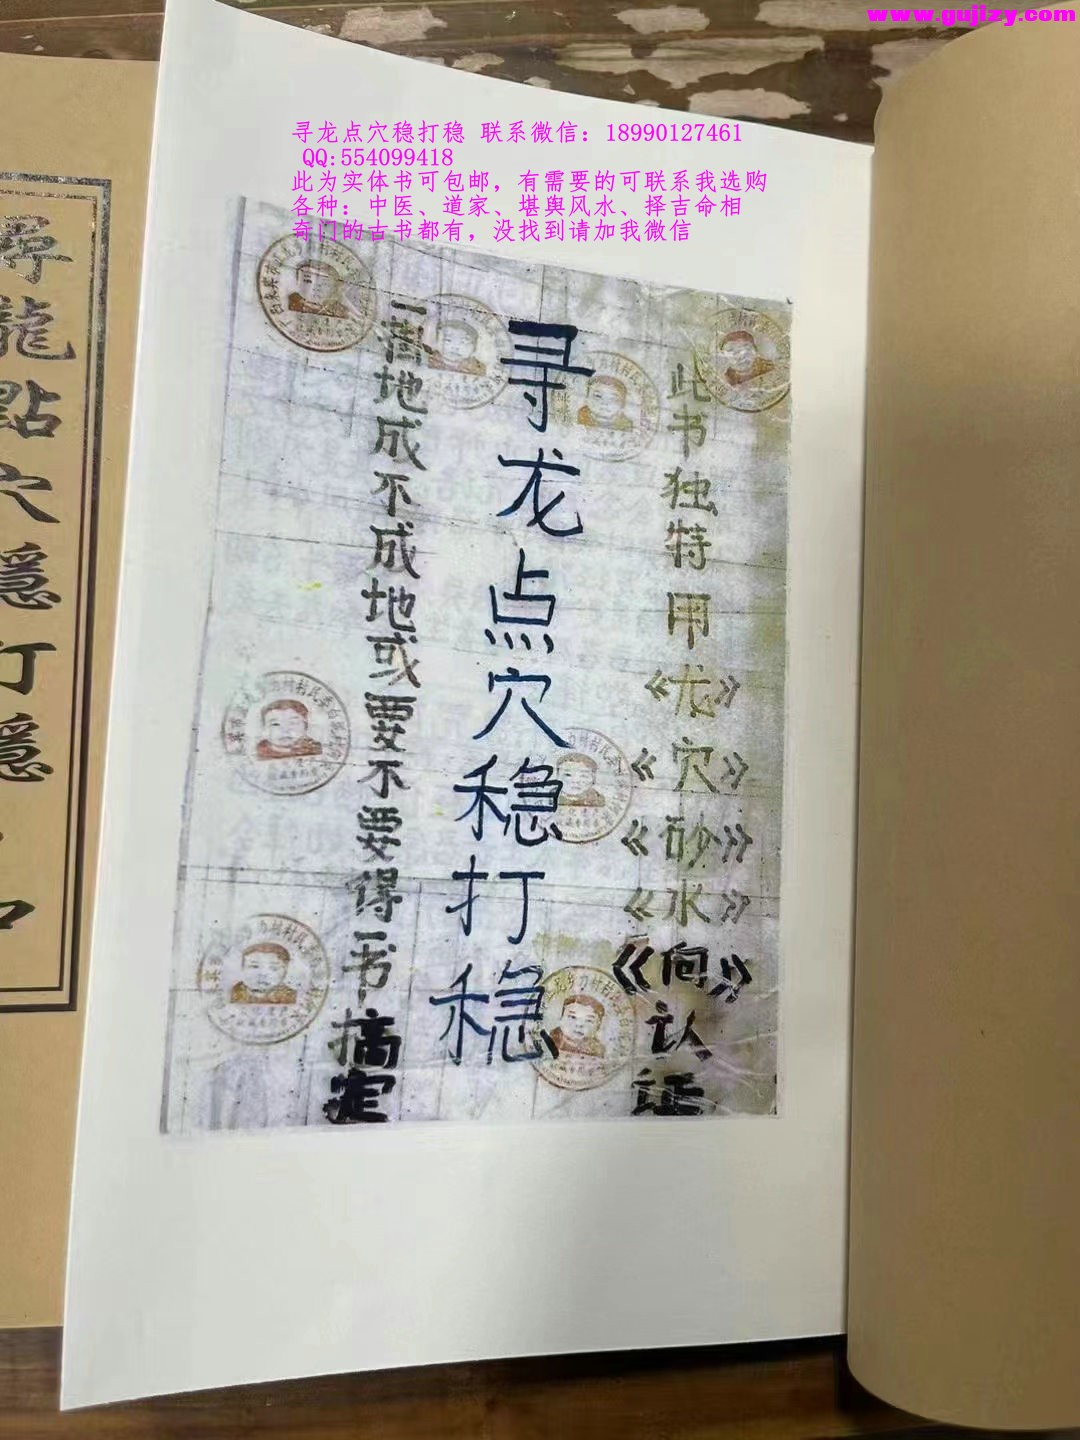 www.gujizy.com
寻龙点穴稳打稳 联系微信：18990127461
QQ:554099418
此为实体书可包邮，有需要的可联系我选购
各种：中医、道家、堪舆风水、择吉命相
奇门的古书都有，没找到请加我微信
此书独特用《龙》《穴》《砂》《水》《向》认证
寻龙点穴稳打稳
地成不成地或要不要得一书搞定
尋龍點穴穩打穩